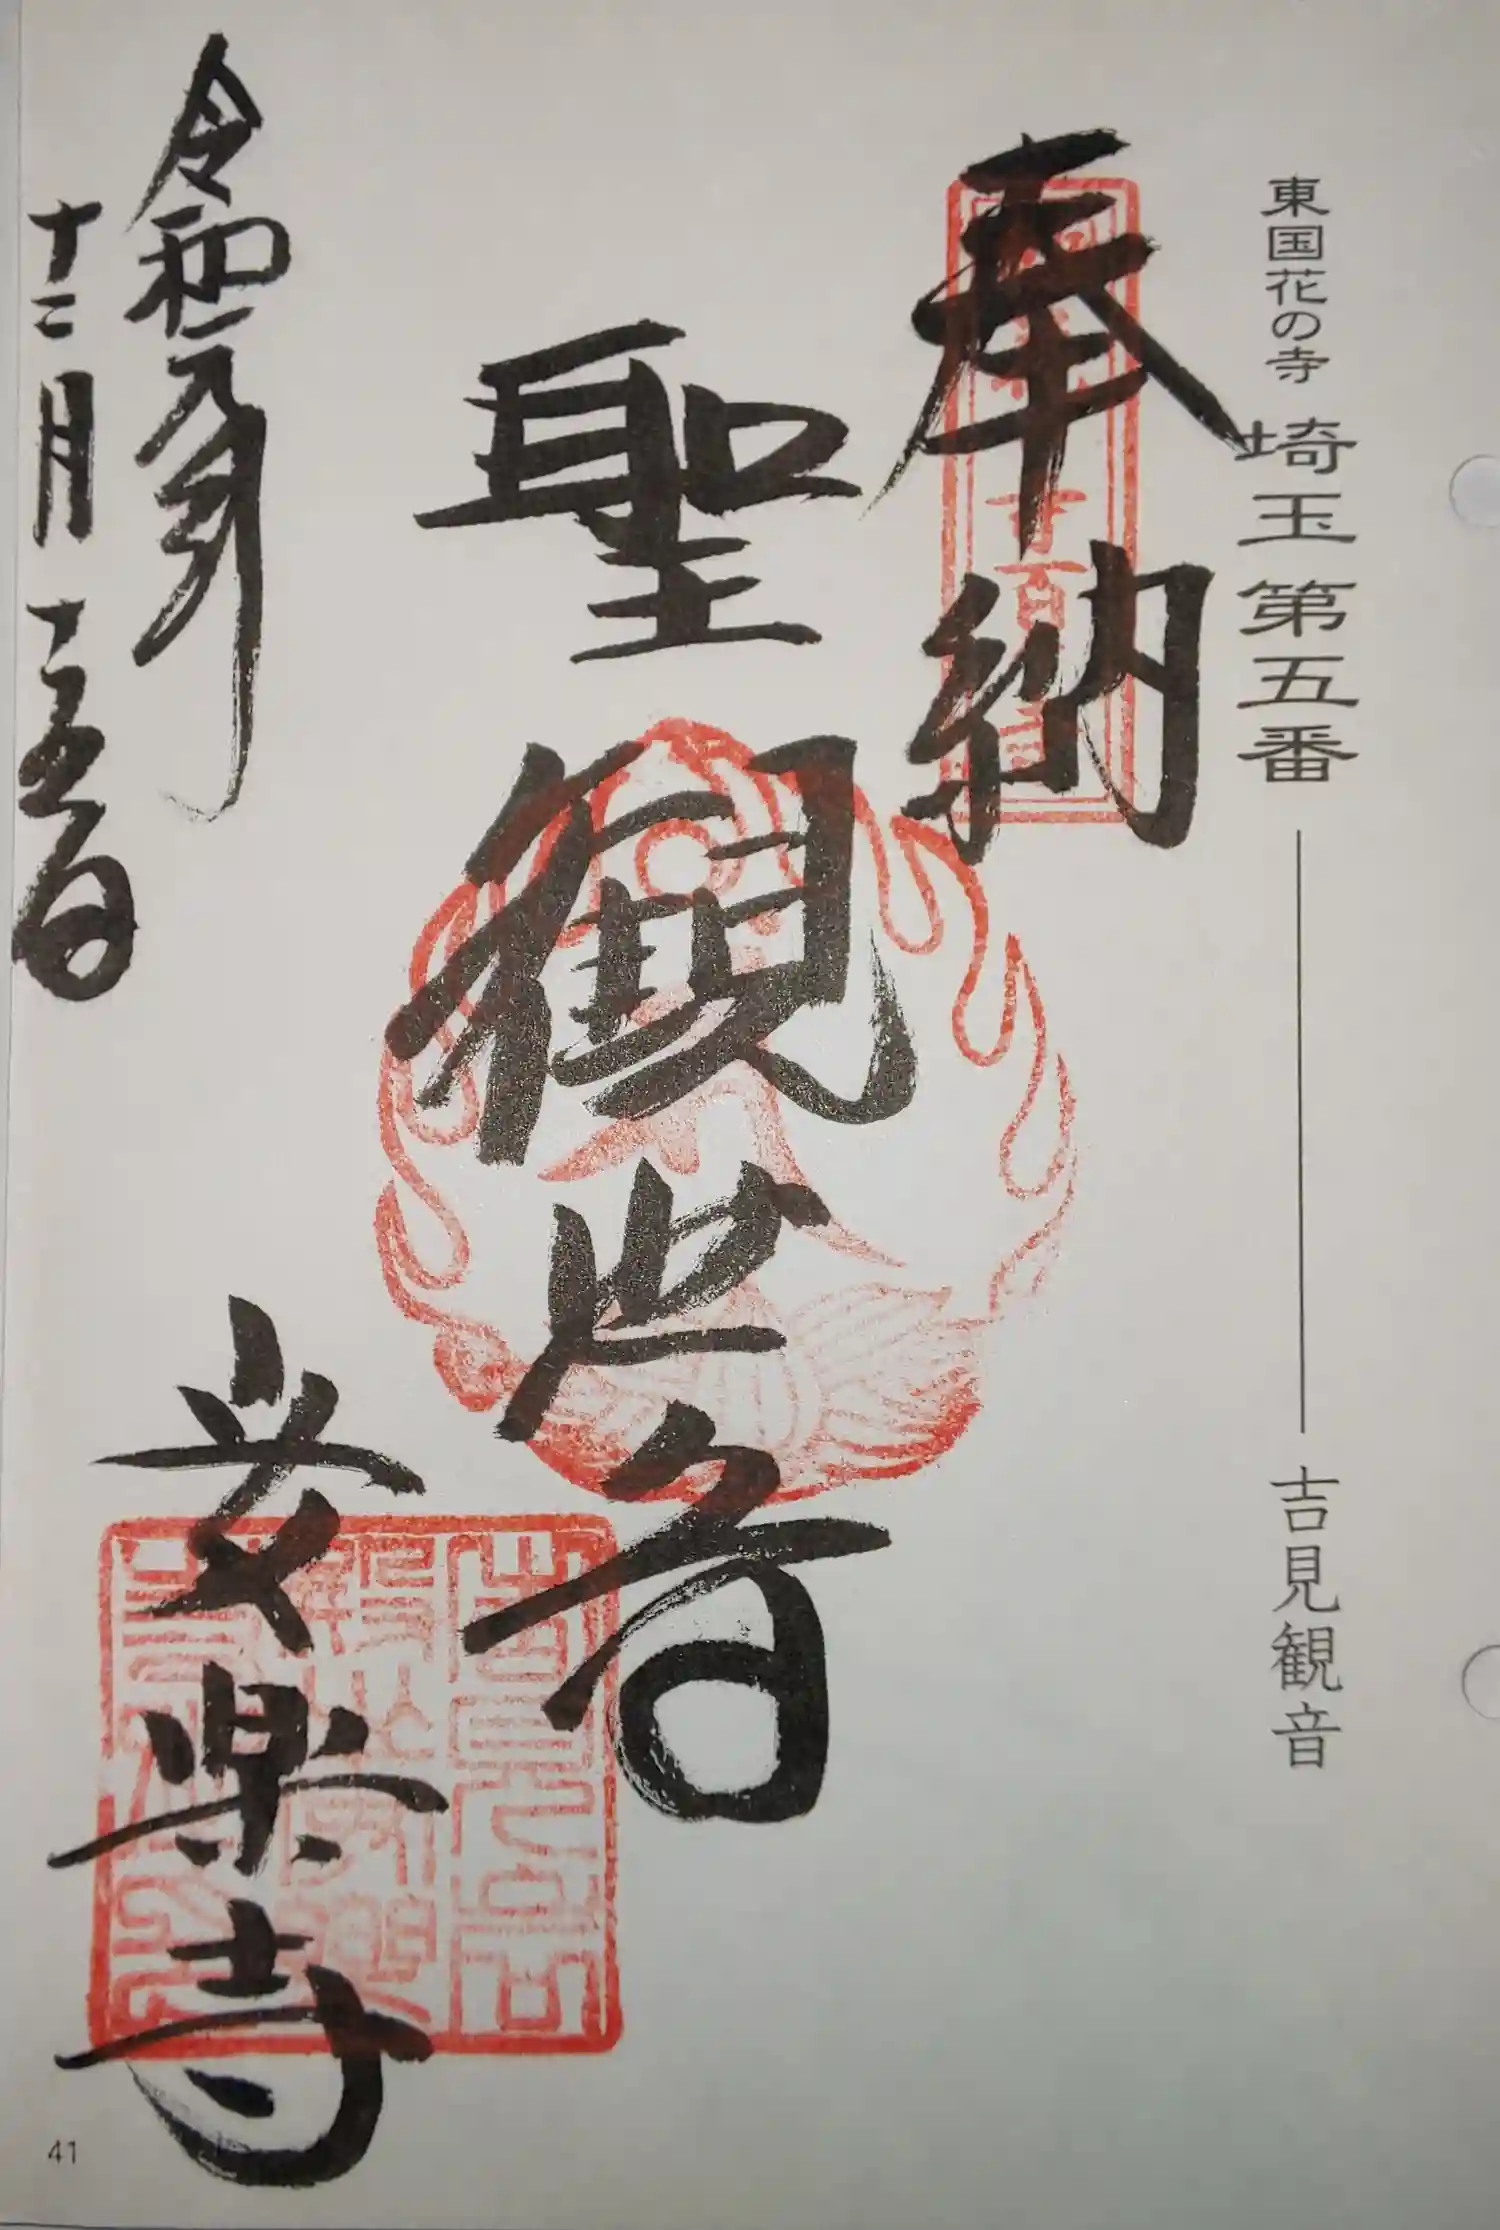 東国花の寺 埼玉第五番 吉見観音
奉納
聖観世音
令和元年
十二月
安楽寺
41